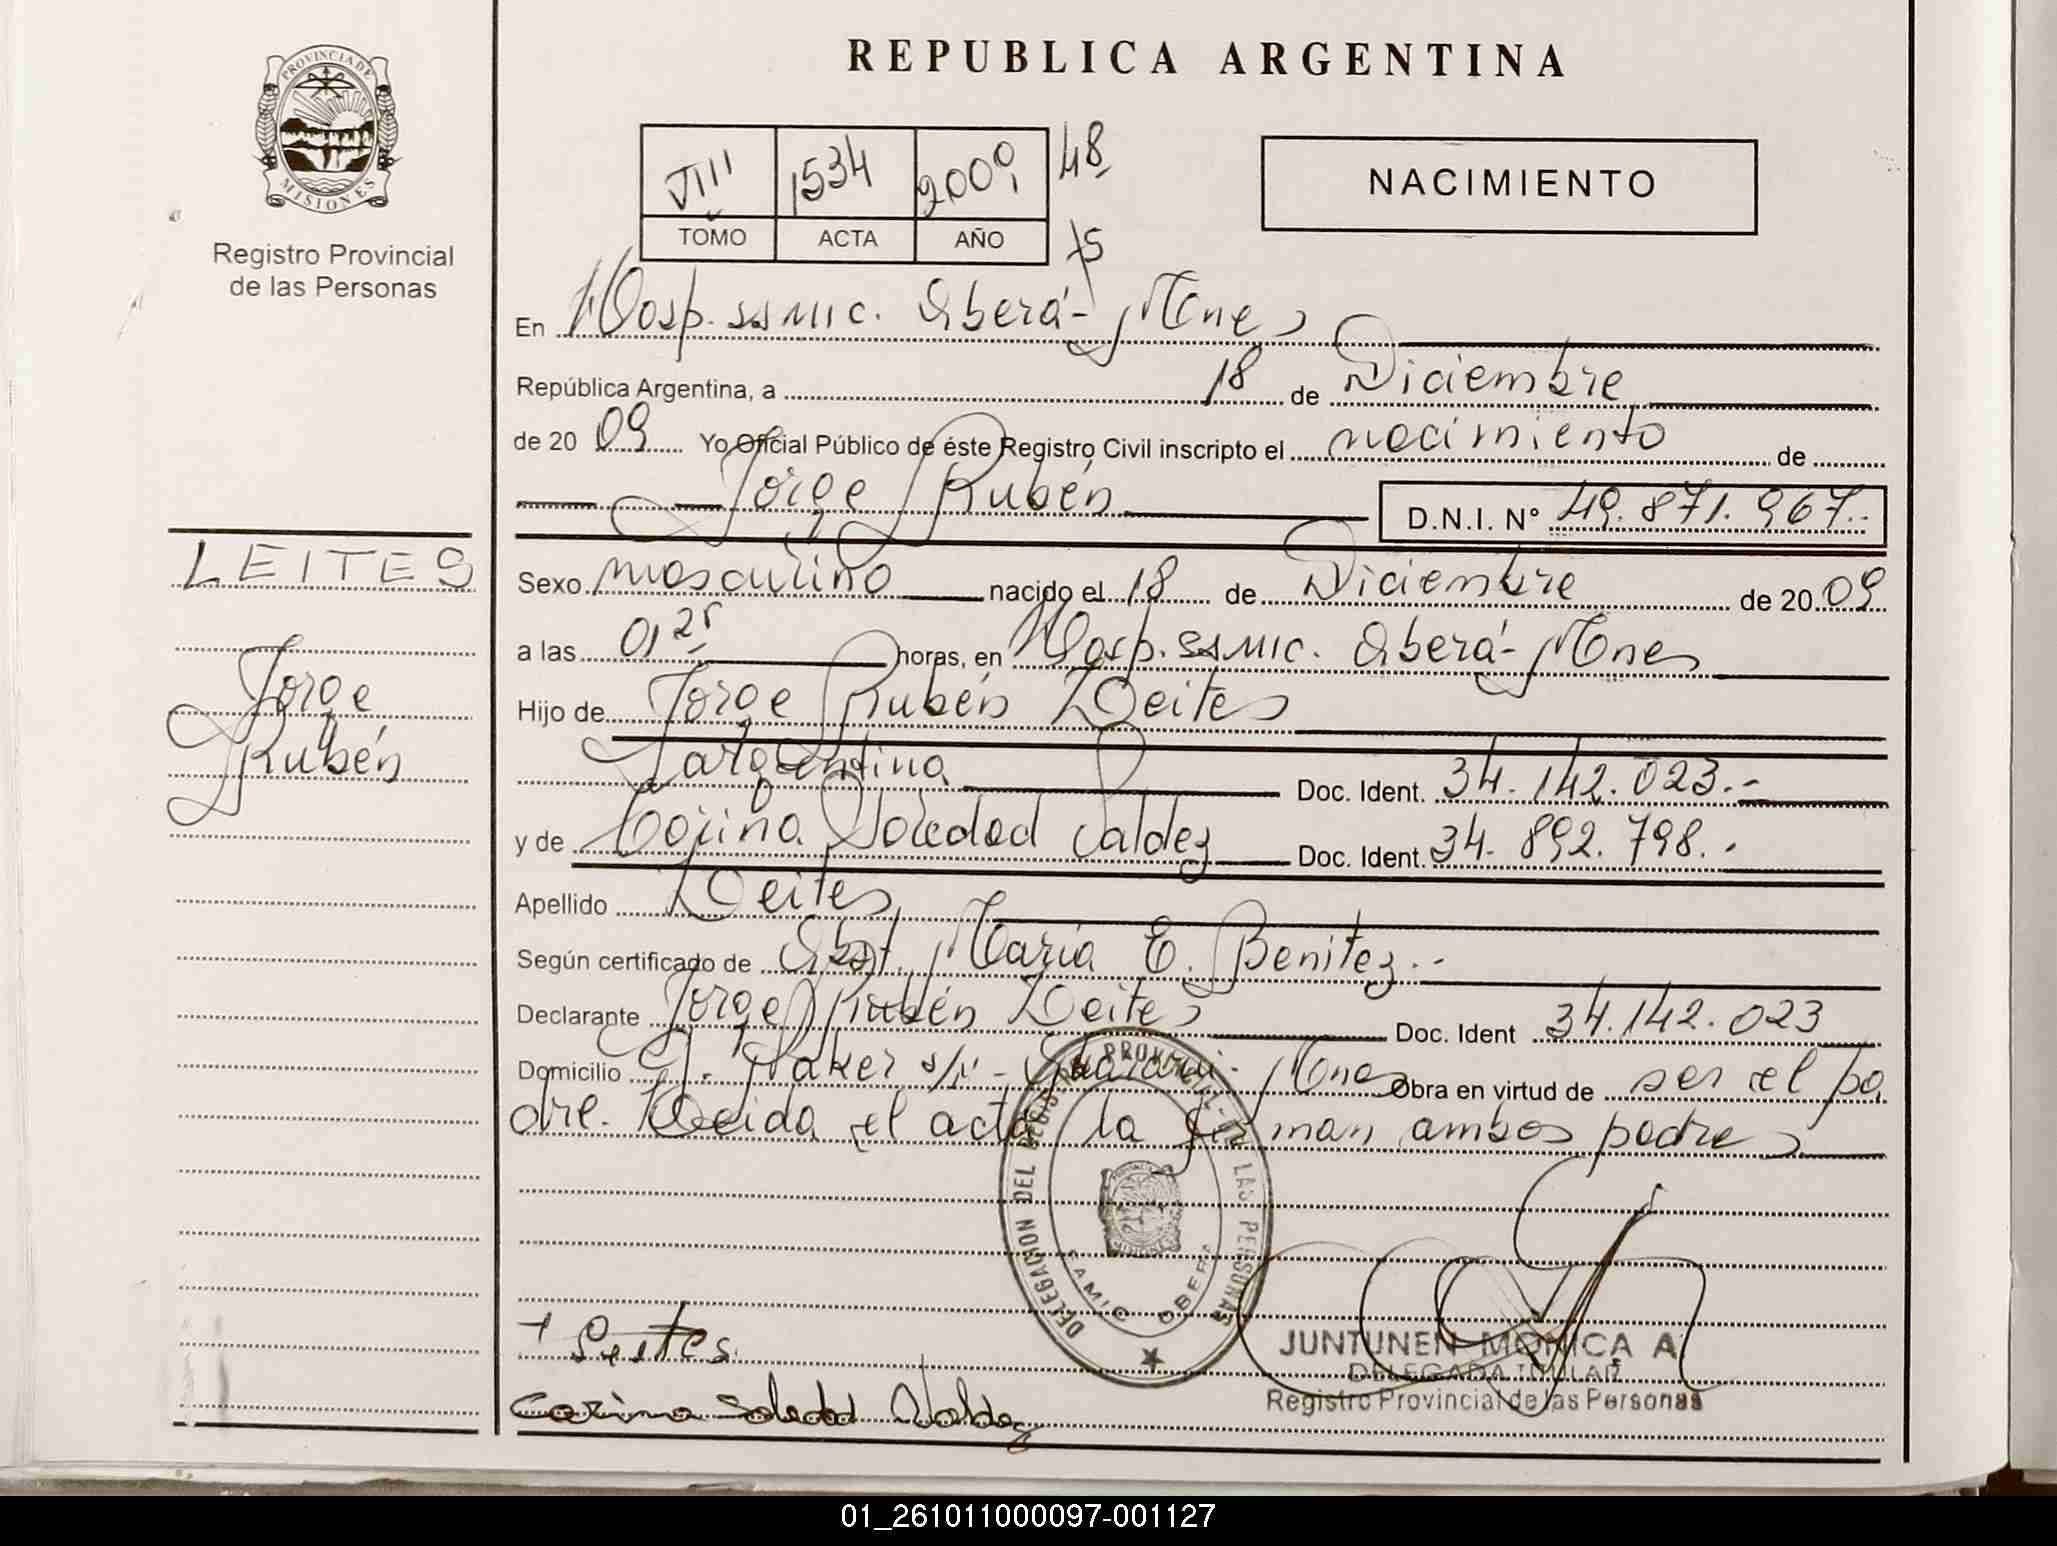 REPUBLICA ARGENTINA
PROVINCIA DE
MISIONES
Registro Provincial
de las Personas
VIII 1534 2009 48
TOMO ACTA AÑO 75
NACIMIENTO
En Hosp. SAMIC. Oberá - Mnes
República Argentina, a 18 de Diciembre
de 20 09 Yo Oficial Público de éste Registro Civil inscripto el nacimiento de
Jorge Rubén D.N.I. Nº 49.871.967.-
LEITES
Jorge
Rubén
Sexo masculino nacido el 18 de Diciembre de 20 09
a las 01 25 horas, en Hosp. SAMIC. Oberá - Mnes
Hijo de Jorge Rubén Leites
argentina Doc. Ident. 34.142.023.-
y de Carina Soledad Valdez Doc. Ident. 34.892.798.-
Apellido Leites
Según certificado de Obst. María E. Benitez.-
Declarante Jorge Rubén Leites Doc. Ident 34.142.023
Domicilio s/n - Guaraní - Mnes Obra en virtud de ser el pa
dre. Leida el acta la firman ambos padres
DELEGACION DEL REGISTRO PROVINCIAL DE LAS PERSONAS
SAMIC OBERA
Leites
Carina Soledad Valdez
JUNTUNEN MONICA A
DELEGADA TITULAR
Registro Provincial de las Personas
01_261011000097-001127